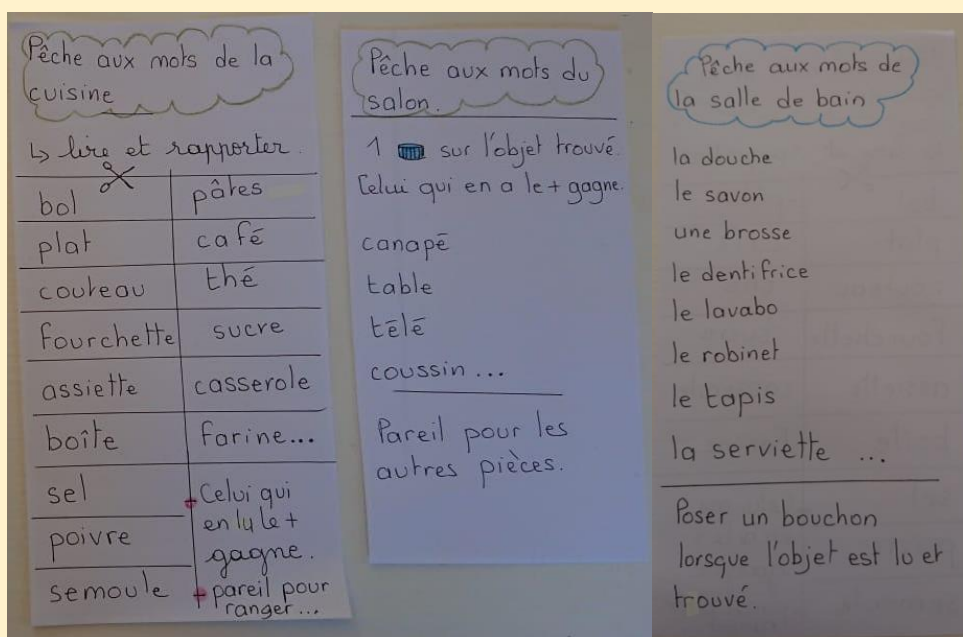 Pêche aux mots de la
cuisine
↳ lire et rapporter.
bol
pâtes
plat
café
couteau
thé
fourchette
sucre
assiette
casserole
boîte
farine...
sel
poivre
semoule
+ Celui qui
en lu le +
gagne.
+ pareil pour
ranger...
Pêche aux mots du
salon.
1 sur l'objet trouvé.
Celui qui en a le + gagne.
canapé
table
télé
coussin...
Pareil pour les
autres pièces.
Pêche aux mots de
la salle de bain
la douche
le savon
une brosse
le dentifrice
le lavabo
le robinet
le tapis
la serviette ...
Poser un bouchon
lorsque l'objet est lu et
trouvé.